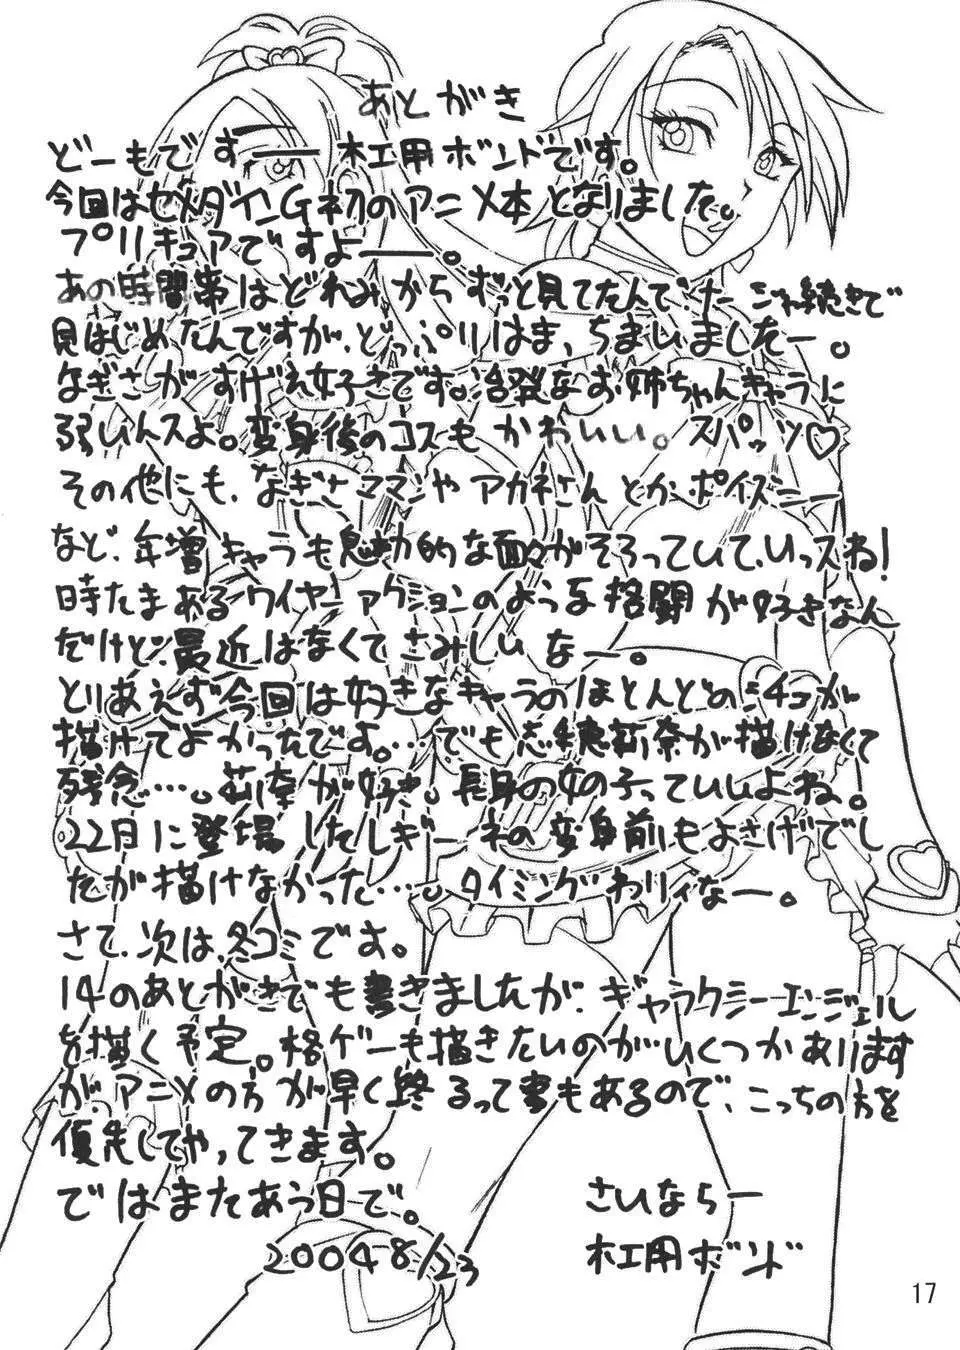 あとがき
どーもですー 木工用ボンドです。
今回はセメダインG初のアニメ本となりました。
プリキュアですよー。
あの時間帯はどれみからずっと見てたんでたー じゃ続きで
見はじめたんですが、どっぷりはま、ちまいましたー。
なぎさがすげえ好きです。活発なお姉ちゃんキャラに
弱いんスよ。変身後のコスもかわいい。スパッツ♡
その他にも、なぎさママンやアカネさんとかポイズニー
など、年増キャラも魅力的な面々がそろっていて、いっスね!
時たまあるワイヤーアクションのような格闘が好きなん
だけど、最近はなくてさみしいなー。
とりあえず今回は好きなキャラのほとんどのシチュが
描けてよかったです。…でも志穂莉奈が描けなくて
残念…。莉奈が好き。長身の女の子っていいよね。
22月に登場したレギーネの変身前もよさげでし
たが描けなかった…。タイミングわりィなー。
さて、次は、冬コミです。
14のあとがきでも書きましたが、ギャラクシーエンジェル
を描く予定。格ゲーも描きたいのが…いくつかあります
が、アニメの方が早く終るって事もあるので、こっちの方を
優先してやってきます。
ではまたあう日で。
さいならー
2004 8/23
木工用ボンド
17